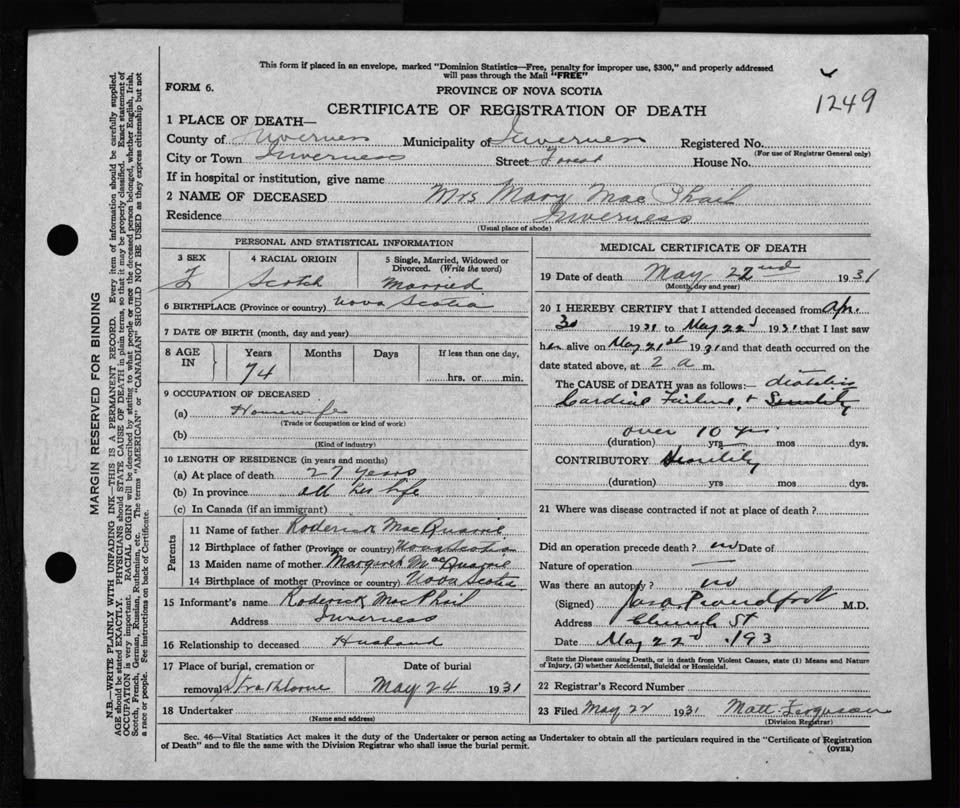 This form if placed in an envelope, marked "Dominion Statistics—Free, penalty for improper use, $300," and properly addressed
will pass through the Mail "FREE"
FORM 6.
PROVINCE OF NOVA SCOTIA
1249
CERTIFICATE OF REGISTRATION OF DEATH
1 PLACE OF DEATH—
County of Inverness Municipality of Inverness Registered No.
(For use of Registrar General only)
City or Town Inverness Street Forest House No.
If in hospital or institution, give name
2 NAME OF DECEASED Mrs Mary MacPhail
Residence Inverness
(Usual place of abode)
PERSONAL AND STATISTICAL INFORMATION
3 SEX 4 RACIAL ORIGIN 5 Single, Married, Widowed or
Divorced. (Write the word)
F Scotch Married
6 BIRTHPLACE (Province or country) Nova Scotia
7 DATE OF BIRTH (month, day and year)
8 AGE IN Years Months Days If less than one day,
74 hrs. or min.
9 OCCUPATION OF DECEASED
(a) Housewife
(Trade or occupation or kind of work)
(b)
(Kind of industry)
10 LENGTH OF RESIDENCE (in years and months)
(a) At place of death 27 years
(b) In province all her life
(c) In Canada (if an immigrant)
Parents
11 Name of father Roderick MacQuarrie
12 Birthplace of father (Province or country) Nova Scotia
13 Maiden name of mother Margaret MacQuarrie
14 Birthplace of mother (Province or country) Nova Scotia
15 Informant's name Roderick MacPhail
Address Inverness
16 Relationship to deceased Husband
17 Place of burial, cremation or Date of burial
removal Strathlorne May 24 1931
18 Undertaker
(Name and address)
MEDICAL CERTIFICATE OF DEATH
19 Date of death May 22nd 1931
(Month, day and year)
20 I HEREBY CERTIFY that I attended deceased from Apr.
30 1931 to May 22d 1931 that I last saw
her alive on May 21st 1931 and that death occurred on the
date stated above, at 2 a m.
The CAUSE of DEATH was as follows:— diabetes
Cardiac Failure, + Senility
over 10 yrs
(duration) yrs mos dys.
CONTRIBUTORY Senility
(duration) yrs mos dys.
21 Where was disease contracted if not at place of death?
Did an operation precede death? no Date of
Nature of operation
Was there an autopsy? no
(Signed) M.D.
Address St
Date May 22d , 193
State the Disease causing Death, or in death from Violent Causes, state (1) Means and Nature
of Injury, (2) whether Accidental, Suicidal or Homicidal.
22 Registrar's Record Number
23 Filed May 22 1931 Matt Ferguson
(Division Registrar)
Sec. 46—Vital Statistics Act makes it the duty of the Undertaker or person acting as Undertaker to obtain all the particulars required in the "Certificate of Registration
of Death" and to file the same with the Division Registrar who shall issue the burial permit.
(OVER)
MARGIN RESERVED FOR BINDING
N.B.—WRITE PLAINLY WITH UNFADING INK—THIS IS A PERMANENT RECORD. Every item of information should be carefully supplied.
AGE should be stated EXACTLY. PHYSICIANS should STATE CAUSE OF DEATH in plain terms, so that it may be properly classified. Exact statement of
OCCUPATION is very important. RACIAL ORIGIN will be described by stating to what people or race the deceased person belonged, whether English, Irish,
Scotch, French, German, Russian, Ruthenian, etc. The terms "AMERICAN" or "CANADIAN" SHOULD NOT BE USED as they express citizenship but not
a race or people. See instructions on back of Certificate.